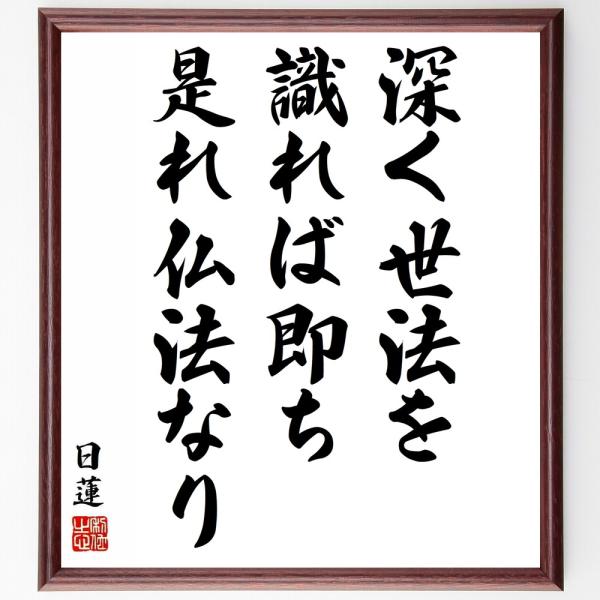 深く世法を
識れば即ち
是れ仏法なり
日蓮